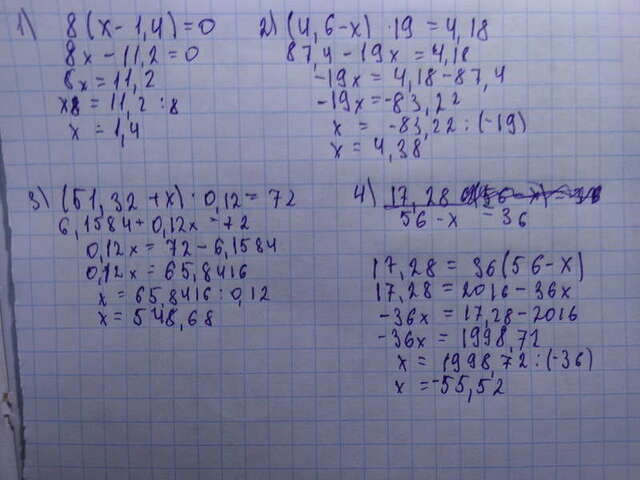 1) 8(x - 1,4) = 0
8x - 11,2 = 0
8x = 11,2
x8 = 11,2 : 8
x = 1,4
2) (4,6 - x) · 19 = 4,18
87,4 - 19x = 4,18
-19x = 4,18 - 87,4
-19x = -83,22
x = -83,22 : (-19)
x = 4,38
3) (51,32 + x) · 0,12 = 72
6,1584 + 0,12x = 72
0,12x = 72 - 6,1584
0,12x = 65,8416
x = 65,8416 : 0,12
x = 548,68
4) 17,28
56 - x = 36
17,28 = 36(56 - x)
17,28 = 2016 - 36x
-36x = 17,28 - 2016
-36x = 1998,72
x = 1998,72 : (-36)
x = -55,52